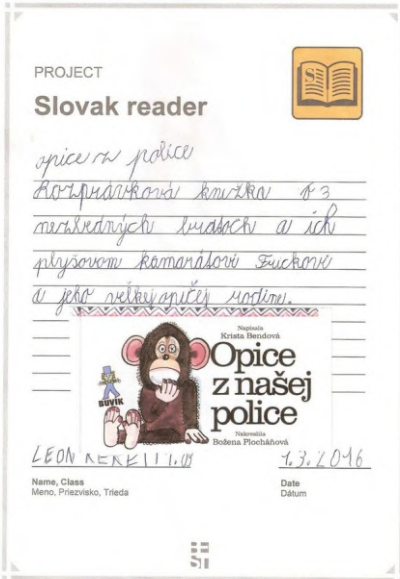 PROJECT
Slovak reader
opice z police
Rozprávková knižka o 3
nezbedných bratoch a ich
plyšovom kamarátovi
a jeho veľkej opičej rodine.
Napísala
Krista Bendová
Opice
z našej
police
BUVIK
Nakreslila
Božena Plocháňová
LEON 1.3.2016
Name, Class Date
Meno, Priezvisko, Trieda Dátum